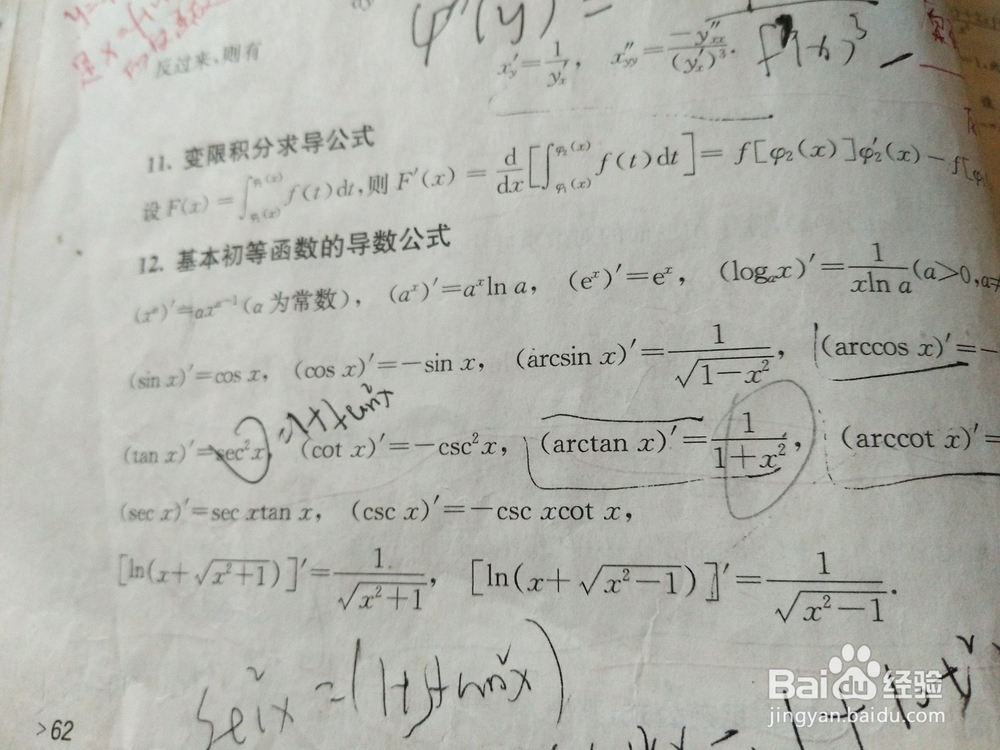 φ'(y) =
反过来,则有
x'_y=1/y'_x, x''_{yy}=-y''_{xx}/(y'_x)^3.
11. 变限积分求导公式
设 F(x)=∫_{φ₁(x)}^{φ₂(x)} f(t)dt,则 F'(x)=d/dx[∫_{φ₁(x)}^{φ₂(x)} f(t)dt]=f[φ₂(x)]φ'₂(x)-f[φ₁
12. 基本初等函数的导数公式
(x^α)'=αx^{α-1}(α 为常数), (a^x)'=a^x ln a, (e^x)'=e^x, (log_a x)'=1/(xln a)(a>0,a≠
(sin x)'=cos x, (cos x)'=-sin x, (arcsin x)'=1/√(1-x²), (arccos x)'=-
=1+tan²x
(tan x)'=sec²x, (cot x)'=-csc²x, (arctan x)'=1/(1+x²), (arccot x)'=
(sec x)'=sec xtan x, (csc x)'=-csc xcot x,
[ln(x+√(x²+1))]'=1/√(x²+1), [ln(x+√(x²-1))]'=1/√(x²-1).
sec²x=(1+tan²x)
>62
Baidu 经验
jingyan.baidu.com